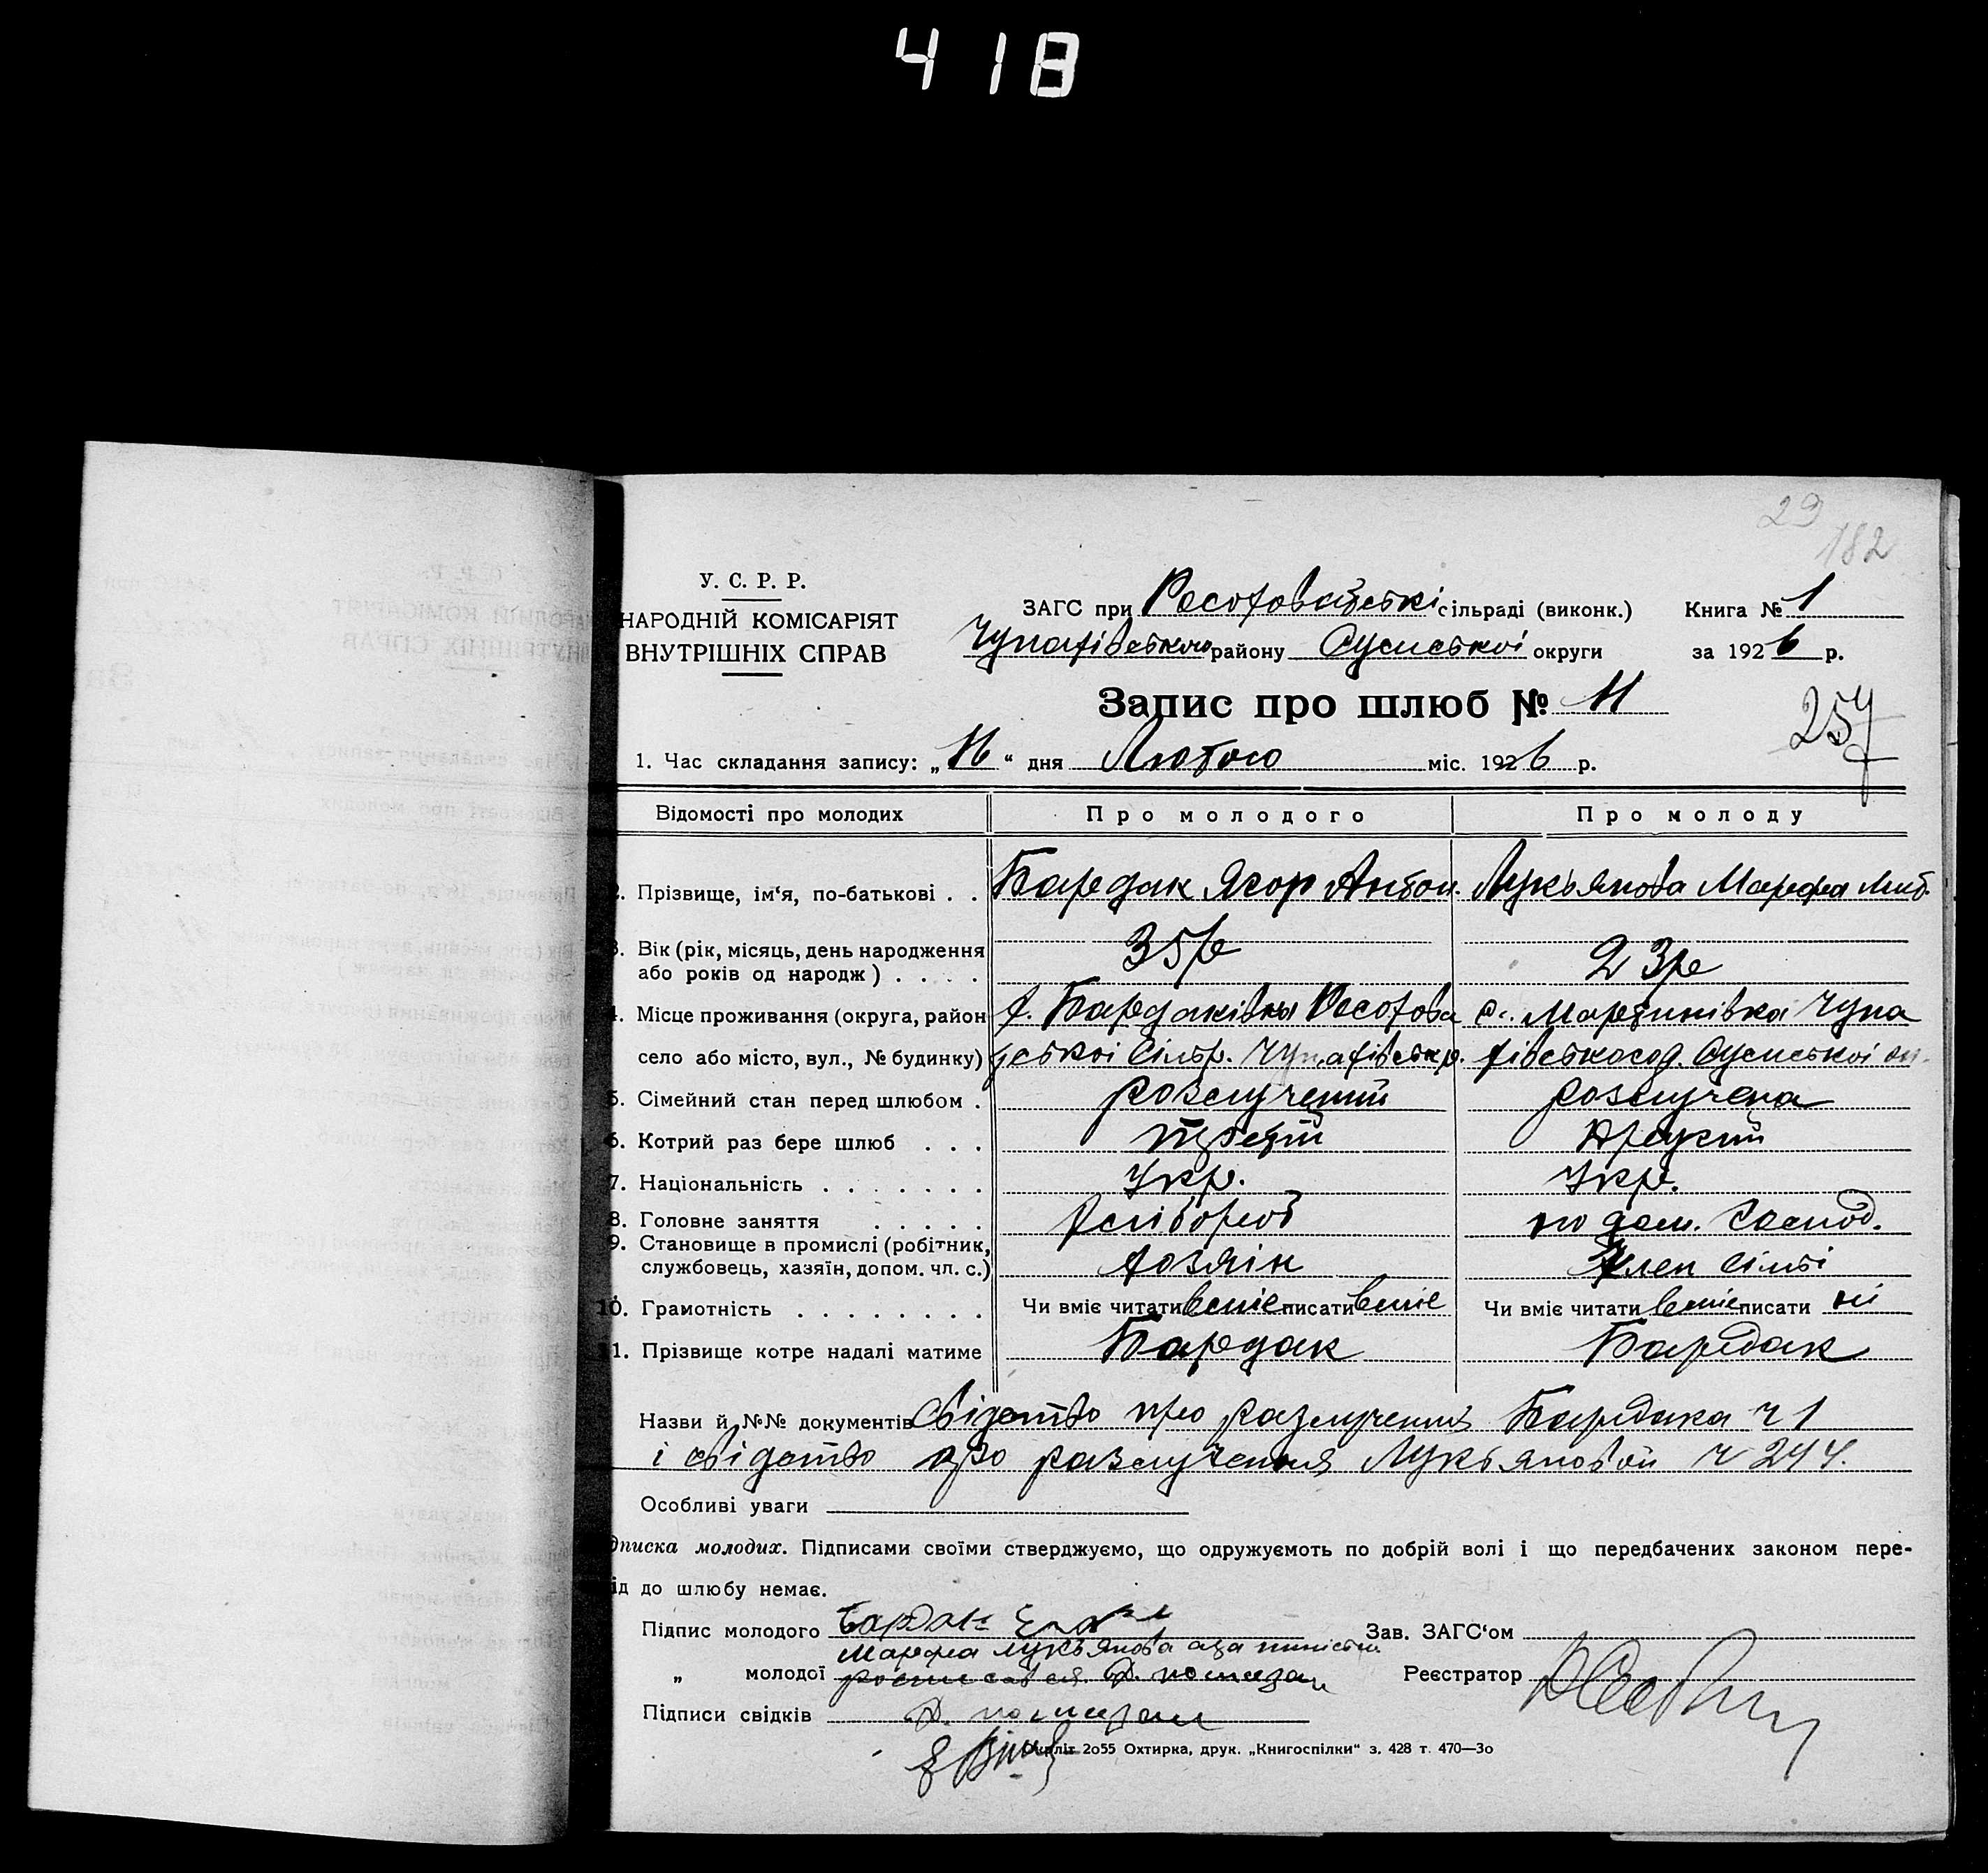 418
29
182
У. С. Р. Р.
НАРОДНІЙ КОМІСАРІЯТ
ВНУТРІШНІХ СПРАВ
ЗАГС при сільраді (виконк.) Книга № 1
Чупахівського району Сумської округи за 1926 р.
Запис про шлюб № 11
257
1. Час складання запису: „16“ дня Лютого міс. 1926 р.
Відомості про молодих Про молодого Про молоду
2. Прізвище, ім‘я, по-батькові . . Бардак Ягор Антон. Лукьянова Марфа
3. Вік (рік, місяць, день народження 35 р
або років од народж ) . . . . 23 р
4. Місце проживання (округа, район х. Бардаківка Россохова с. Мартинівка Чупа
село або місто, вул., № будинку) ської Сільр. Чупахівськ р. хівського р. Сумської ок.
5. Сімейний стан перед шлюбом . розлучений розлучена
6. Котрий раз бере шлюб . . . третій другий
7. Національність . . . . . . . Укр. Укр.
8. Головне заняття . . . . . хлібороб по дом. господ.
9. Становище в промислі (робітник,
службовець, хазяїн, допом. чл. с.) хозяін Член сімьі
10. Грамотність . . . . . . . . Чи вміє читати вміє писати вміє Чи вміє читати вміє писати ні
11. Прізвище котре надалі матиме Бардак Бардак
Назви й №№ документів Свідотство про разлучення Бардака ч 1
і свідотство про разлучення Лукьяновой ч 244.
Особливі уваги
дписка молодих. Підписами своїми стверджуємо, що одружуємоть по добрій волі і що передбачених законом пере-
ід до шлюбу немає.
Підпис молодого Бардак Зав. ЗАГС‘ом
Марфа Лукьянова а за
„ молодої росписався Реєстратор
Підписи свідків
Окрліт 2о55 Охтирка, друк. „Книгоспілки“ з. 428 т. 470—3о